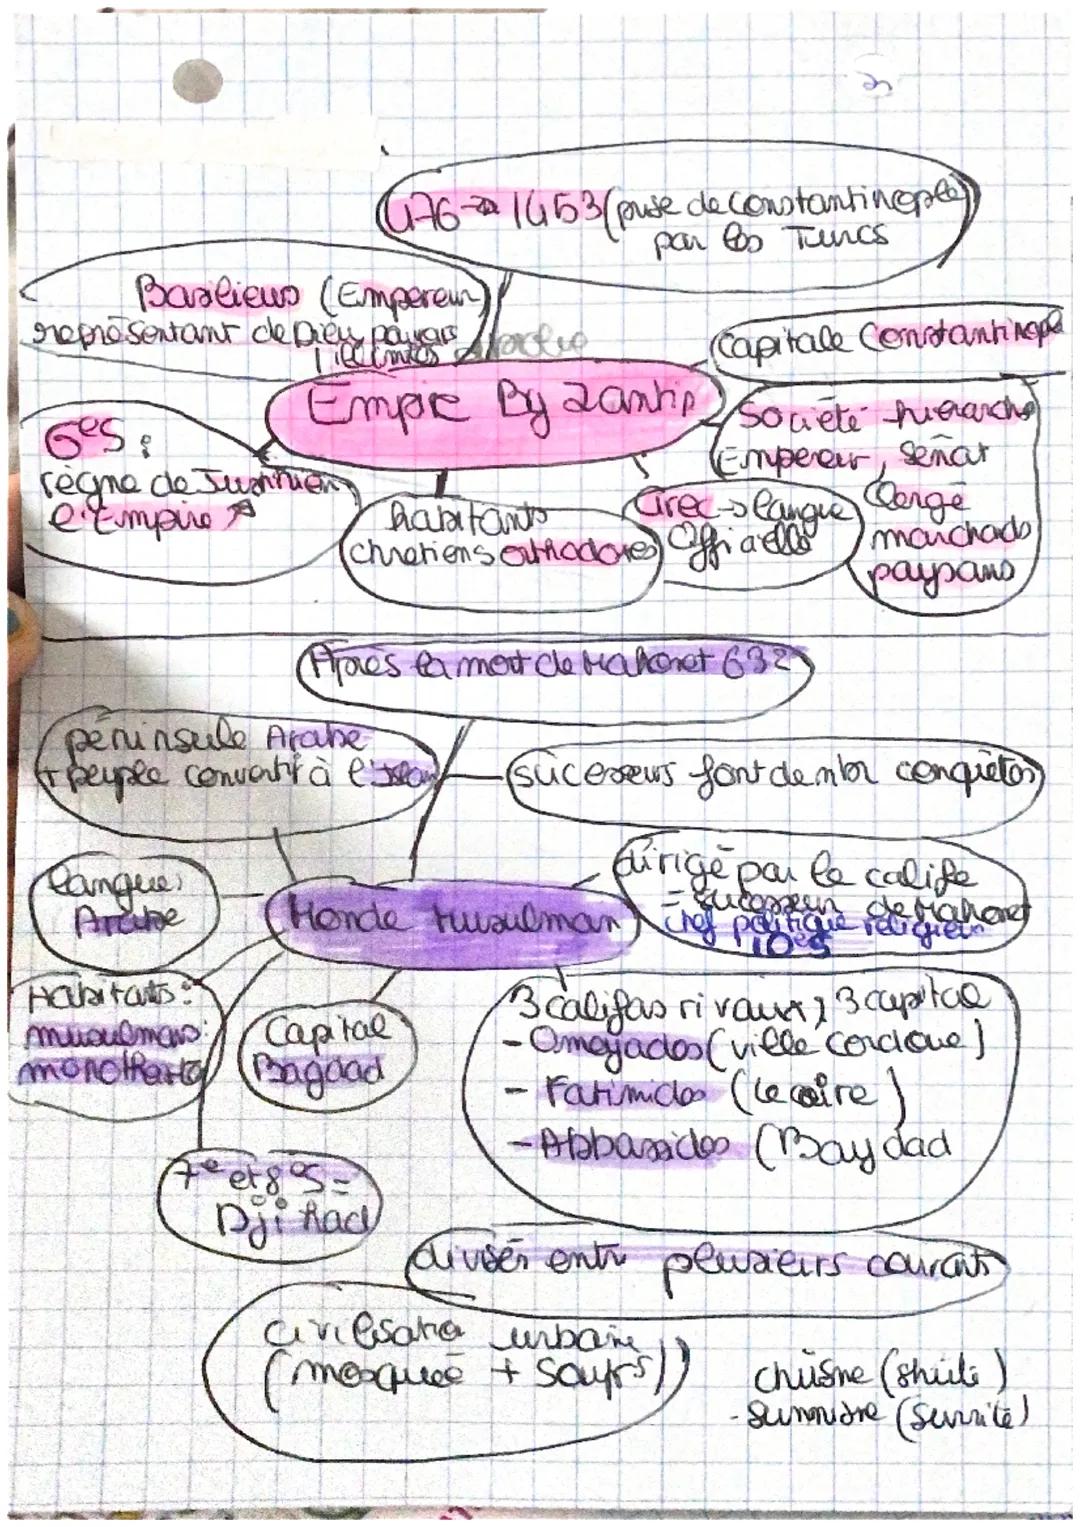 476 → 1453 (prise de constantinople)
par les Turcs
Basileus (Empereur)
représentant de Dieu, pouvoirs
illimités
capitale Constantinople
Empire Byzantin
Société hierarchi
Empereur, Sénat
Clergé
marchads
paysans
6es :
règne de Justinien
l'Empire ↗
habitants
chretiens orthodoxes
Grec → langue
officielle
Après la mort de Mahomet 632
péninsule Arabe
+ peuple convertit à l'islam
sucesseurs font de nbr conquêtes
langue:
Arabe
Monde musulman
dirigé par le calife
= sucesseur de Mahomet
chef politique religieux
10es
Habitats:
musulmans:
monotheiste
Capital
Bagdad
3 califas rivaux, 3 capital
- Omeyades (ville cordoue)
- Fatimides (le caire)
- Abbassides (Baydad
7e et 8es =
Djihad
divisér entr plusieurs courats
civilisatio urbaine
(mosqueé + Souks)
chiisme (shiite)
- sunnisme (sunnite)